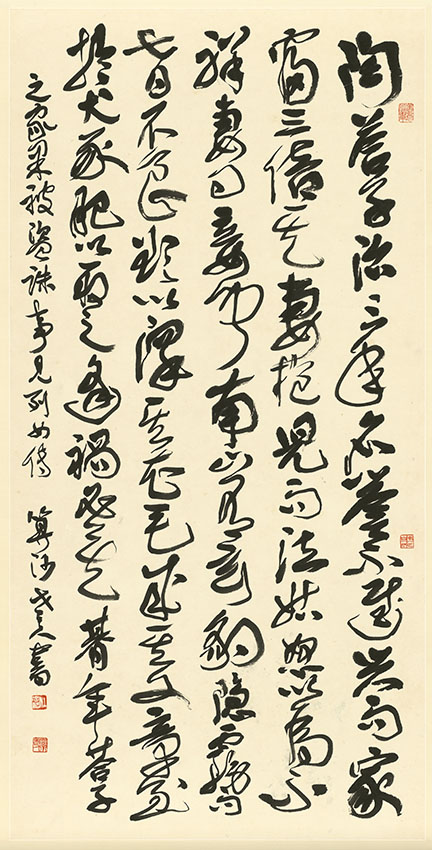 陶荅子治三年名譽不而家
富三倍其妻抱兒而泣姑怒以為不
祥妻曰妾聞南山有玄豹隱霧而
七日不食欲以澤其衣毛成其文章至
於犬豕肥以取之逢禍必矣朞年荅子
之家果被盜誅事見列女傳 算沙老人書